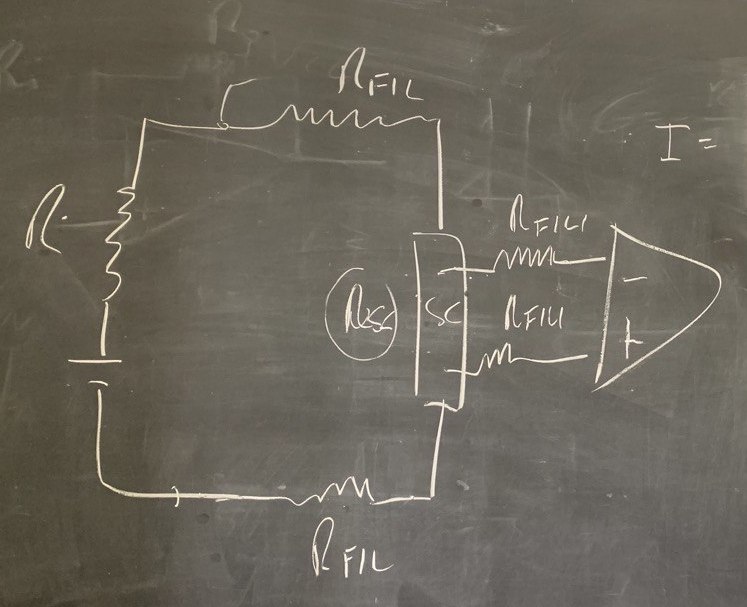 R_FIL
I =
R
R_FIL1
-
R_SC
SC
R_FIL1
+
R_FIL